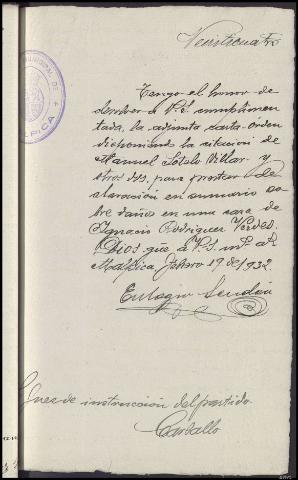 Veinticuatro
MUNICIPAL DE
MALPICA
Tengo el honor de
devolver a V.S. cumplimen-
tada, la adjunta carta-orden
disponiendo la citacion de
Manuel Sotelo Villar y
otros dos, para prestar de-
claración en sumario so-
bre daños en una casa de
Ignacio Rodriguez Verdes.
Dios gue a V.S. m.s a.s
Malpica Febrero 19 de 1932.
Eulogio Sendón
Juez de instrucción del partido
Carballo